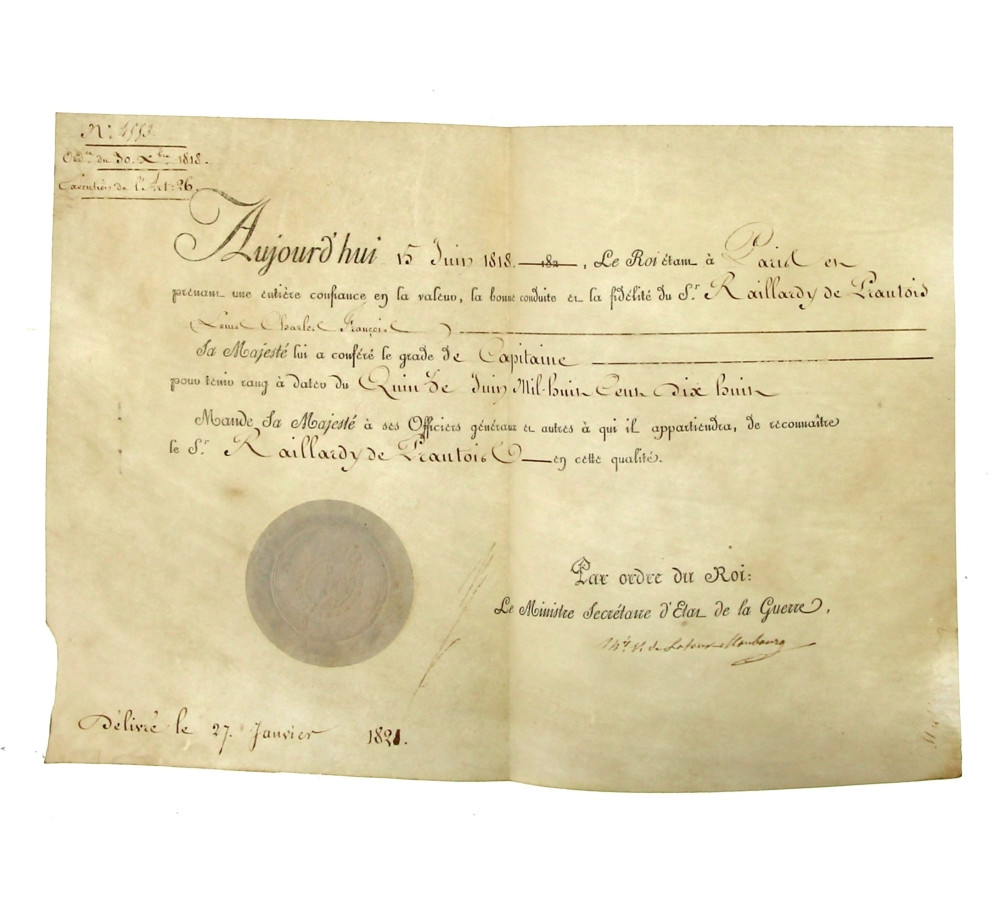 N.º 1553.
Ord.ce du 30. Xbre 1818.
Exécution de l'Art. 26.
Aujourd'hui 15 Juin 1818. 182 , Le Roi étant à Paris en
prenant une entière confiance en la valeur, la bonne conduite et la fidélité du S.r Raillardy de Prautois
(Louis Charles François)
Sa Majesté lui a conféré le grade de Capitaine
pour tenir rang à dater du Quinze Juin Mil-huit Cent Dix huit
Mande Sa Majesté à ses Officiers généraux et autres à qui il appartiendra, de reconnaître
le S.r Raillardy de Prautois en cette qualité.
Par ordre du Roi:
Le Ministre Secrétaire d'Etat de la Guerre,
M.is V. de Latour-Maubourg
Délivré le 27. Janvier 1821.